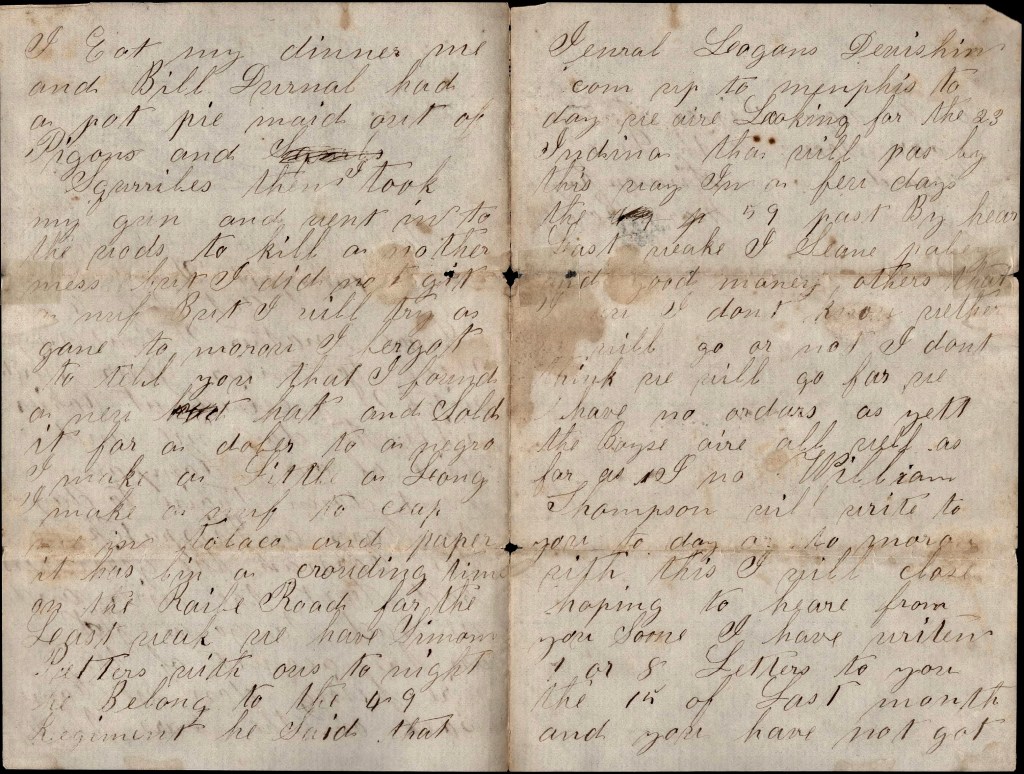 I Eat my dinner me
and Bill Durnal had
a pot pie maid out of
Pigons and
Squrriles then I took
my gun and went in to
the wods to kill a nother
mess but I did not git
a nuf But I will try a
gane to morow I fergot
to tell you that I found
a new hat and Sold
it for a doler to a negro
I make a Little a Long
I make a nuf to ceap
in tobaco and paper
it has bin a crouding time
on the Raile Road for the
Last weak we have Simom
Letters with ous to night
he Belong to the 49
Regiment he Said that
Jenral Logans Devishin
com up to menphis to
day we aire Looking for the 23
Indina tha will pas by
this way In a few days
the 59 past By hear
Last weake I Leane
and good maney others that
I dont know wether
will go or not I dont
think we will go far we
have no ordars as yett
the Boyse aire all well as
far as I no William
Thompson wil write to
you to day or to moro
with this I will close
hoping to heare from
you Soone I have writen
7 or 8 Letters to you
the 15 of Last month
and you have not got